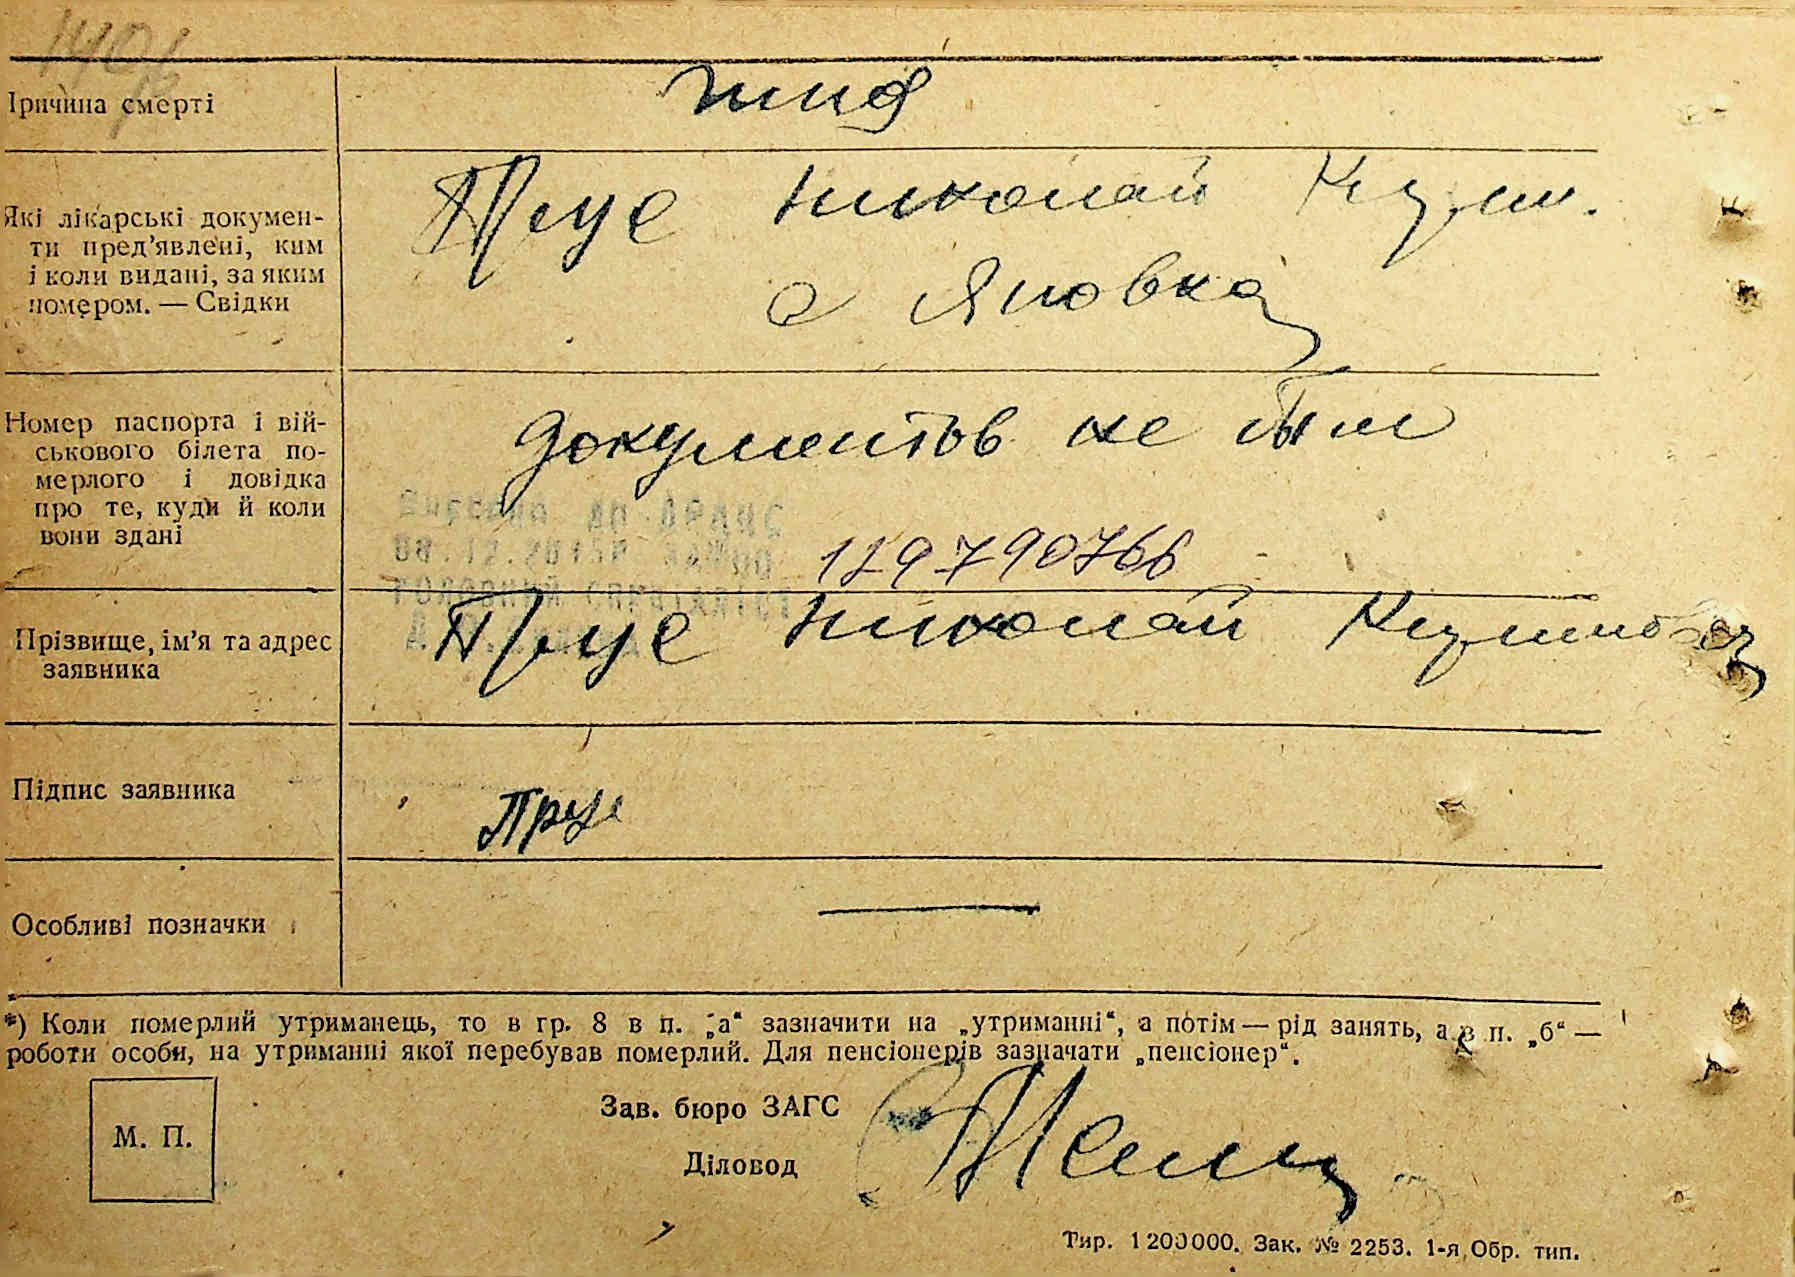 Причина смерти
тиф
Які лікарські докумен-
ти пред'явлені, ким
і коли видані, за яким
номером. — Свідки
Николай
с Яновка
Номер паспорта і вій-
ськового білета по-
мерлого і довідка
про те, куди й коли
вони здані
документов не было
129790766
Прізвище, ім'я та адрес
заявника
Николай
Підпис заявника
Особливі позначки
*) Коли померлий утриманець, то в гр. 8 в п. „а“ зазначити на „утриманні“, а потім — рід занять, а в п. „б“ —
роботи особи, на утриманні якої перебував померлий. Для пенсіонерів зазначати „пенсіонер“.
Зав. бюро ЗАГС
М. П.
Діловод
Тир. 1200000. Зак. № 2253. 1-я Обр. тип.